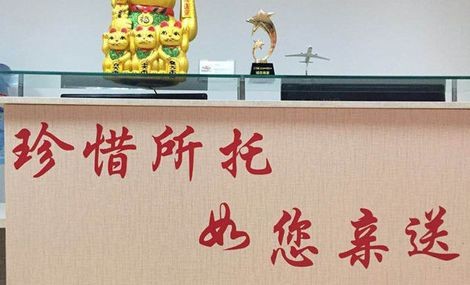 珍惜所托
如您亲送